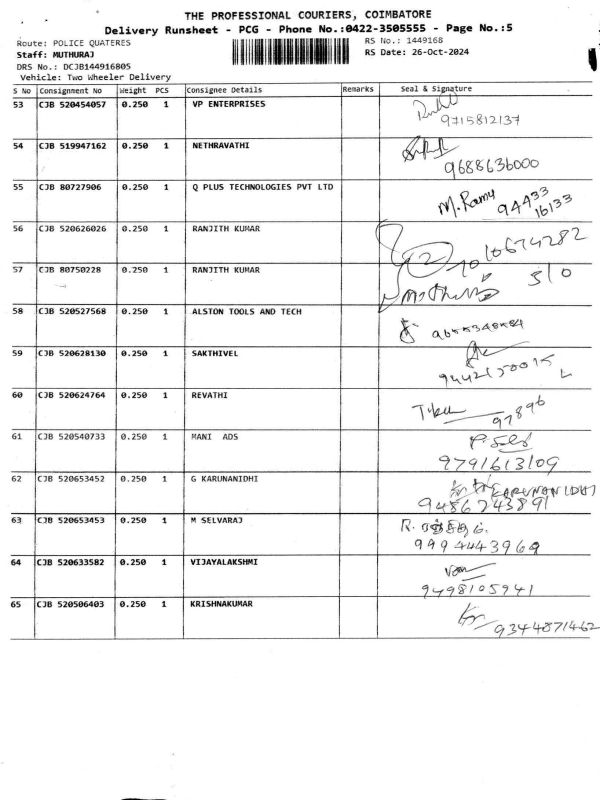 THE PROFESSIONAL COURIERS, COIMBATORE
Delivery Runsheet - PCG - Phone No.:0422-3505555 - Page No.:5
Route: POLICE QUATERES RS No.: 1449168
Staff: MUTHURAJ RS Date: 26-Oct-2024
DRS No.: DCJB144916805
Vehicle: Two Wheeler Delivery
S No Consignment No Weight PCS Consignee Details Remarks Seal & Signature
53 CJB 520454057 0.250 1 VP ENTERPRISES
9715812137
54 CJB 519947162 0.250 1 NETHRAVATHI
9688636000
55 CJB 80727906 0.250 1 Q PLUS TECHNOLOGIES PVT LTD
M. Ramu 94433
16133
56 CJB 520626026 0.250 1 RANJITH KUMAR
57 CJB 80750228 0.250 1 RANJITH KUMAR
S/O
58 CJB 520527568 0.250 1 ALSTON TOOLS AND TECH
59 CJB 520628130 0.250 1 SAKTHIVEL
60 CJB 520624764 0.250 1 REVATHI
97896
61 CJB 520540733 0.250 1 MANI ADS
9791613109
62 CJB 520653452 0.250 1 G KARUNANIDHI
KARUNANIDHI
9486743891
63 CJB 520653453 0.250 1 M SELVARAJ
9994443969
64 CJB 520633582 0.250 1 VIJAYALAKSHMI
9498105941
65 CJB 520506403 0.250 1 KRISHNAKUMAR
9344871462